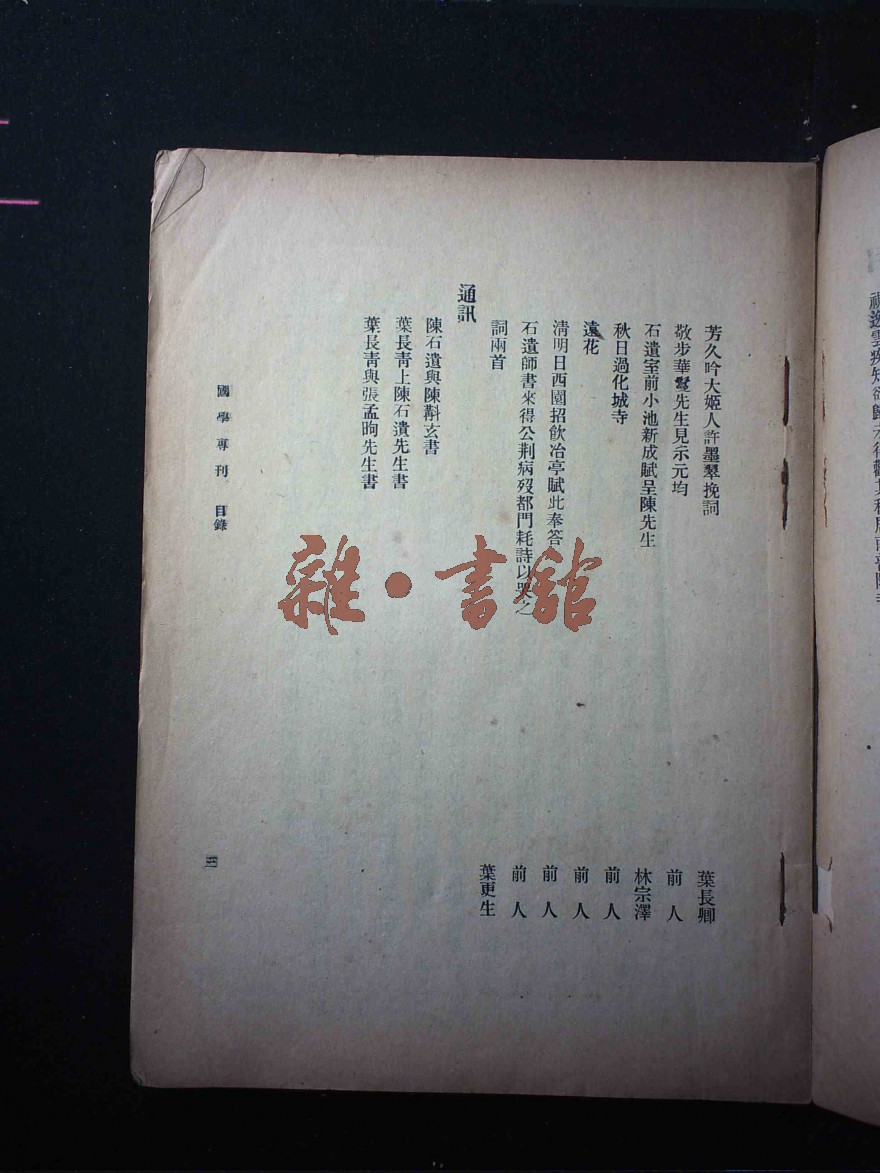 芳久吟大姬人許墨翠挽詞　葉長卿
敬步華鬘先生見示元均　前人
石遺室前小池新成賦呈陳先生　林宗澤
秋日過化城寺　前人
遠花　前人
清明日西園招飲冶亭賦此奉答　前人
石遺師書來得公荆病歿都門耗詩以哭之　前人
詞兩首　葉更生
通訊
陳石遺與陳斠玄書
葉長青上陳石遺先生書
葉長青與張孟昫先生書
國學專刊　目錄
三
雜・書館